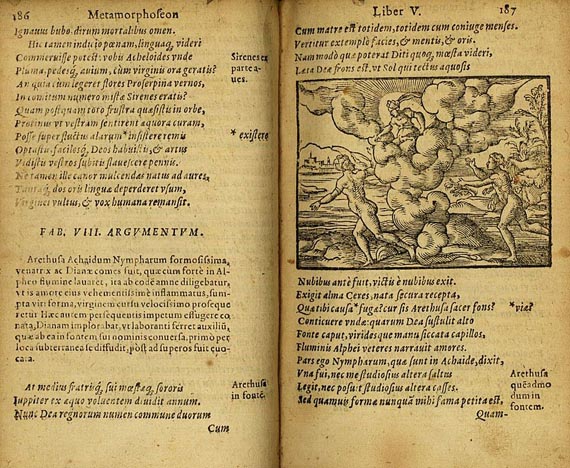 186 Metamorphoseon
Ignavus bubo, dirum mortalibus omen.
Hic tamen indicio pœnam, linguaq, videri
Commeruisse potest: vobis Acheloides vnde
Pluma, pedesq, avium, cùm virginis ora geratis?
An quia cùm legeret flores Proserpina vernos,
In comitum numero mistæ Sirenes eratis?
Quam postquam toto frustra quæsistis in orbe,
Protinus vt vestram sentirent æquora curam,
Posse super fluctus alarum * insistere remis
Optastis, facilesq, Deos habuistis, & artus
Vidistis vestros subitis flavescere pennis.
Ne tamen ille canor mulcendas natus ad aures,
Tantaq, dos oris linguæ deperderet vsum,
Virginei vultus, & vox humana remansit.
Sirenes in
parte a-
ues.
* existere
FAB. VIII. ARGVMENTVM.
Arethusa Achaidum Nympharum formosissima,
venatrix ac Dianæ comes fuit, quæ cùm fortè in Al-
pheo flumine lauaret, ita ab eodē amne diligebatur,
vt is amore eius vehementissimè inflammatus, sum-
pta viri forma, virginem cursu velocissimo proseque
retur Hæc autem persequentis impetum effugere co
nata, Dianam implorabat, vt laboranti ferret auxiliū,
quæ ab ea in fontem sui nominis conversa, primò per
loca subterranea se diffudit, pòst ad superos fuit quo-
cata.
At medius fratrisq, sui mœstæq, sororis
Iuppiter ex æquo voluentem dividit annum.
Nunc Dea regnorum numen commune duorum
Arethusa
in fontē.
Cum
Liber V. 187
Cum matre est totidem, totidem cum coniuge menses.
Vertitur extemplò facies, & mentis, & oris.
Nam modò quæ poterat Diti quoq, mœsta videri,
Læta Deæ frons est, vt Sol qui tectus aquosis
Nubibus antè fuit, victis è nubibus exit.
Exigit alma Ceres, nata secura recepta,
Quæ tibi causa * fugæ? cur sis Arethusa sacer fons?
Conticuere vndæ: quarum Dea sustulit alto
Fonte caput, viridesque manu siccata capillos,
Fluminis Alphei veteres narravit amores.
Pars ego Nympharum, quæ sunt in Achaide, dixit,
Vna fui, nec me studiosius altera saltus
Legit, nec posuit studiosius altera casses.
Sed quamuis formæ nunquā mihi fama petita est,
* viæ?
Arethusa
quēadmo
dum in
fontem.
Quam-